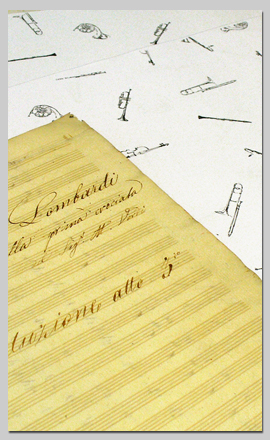 Lombardi
lla prima crociata
del Sigr. Mo. Verdi
duzione atto 3o